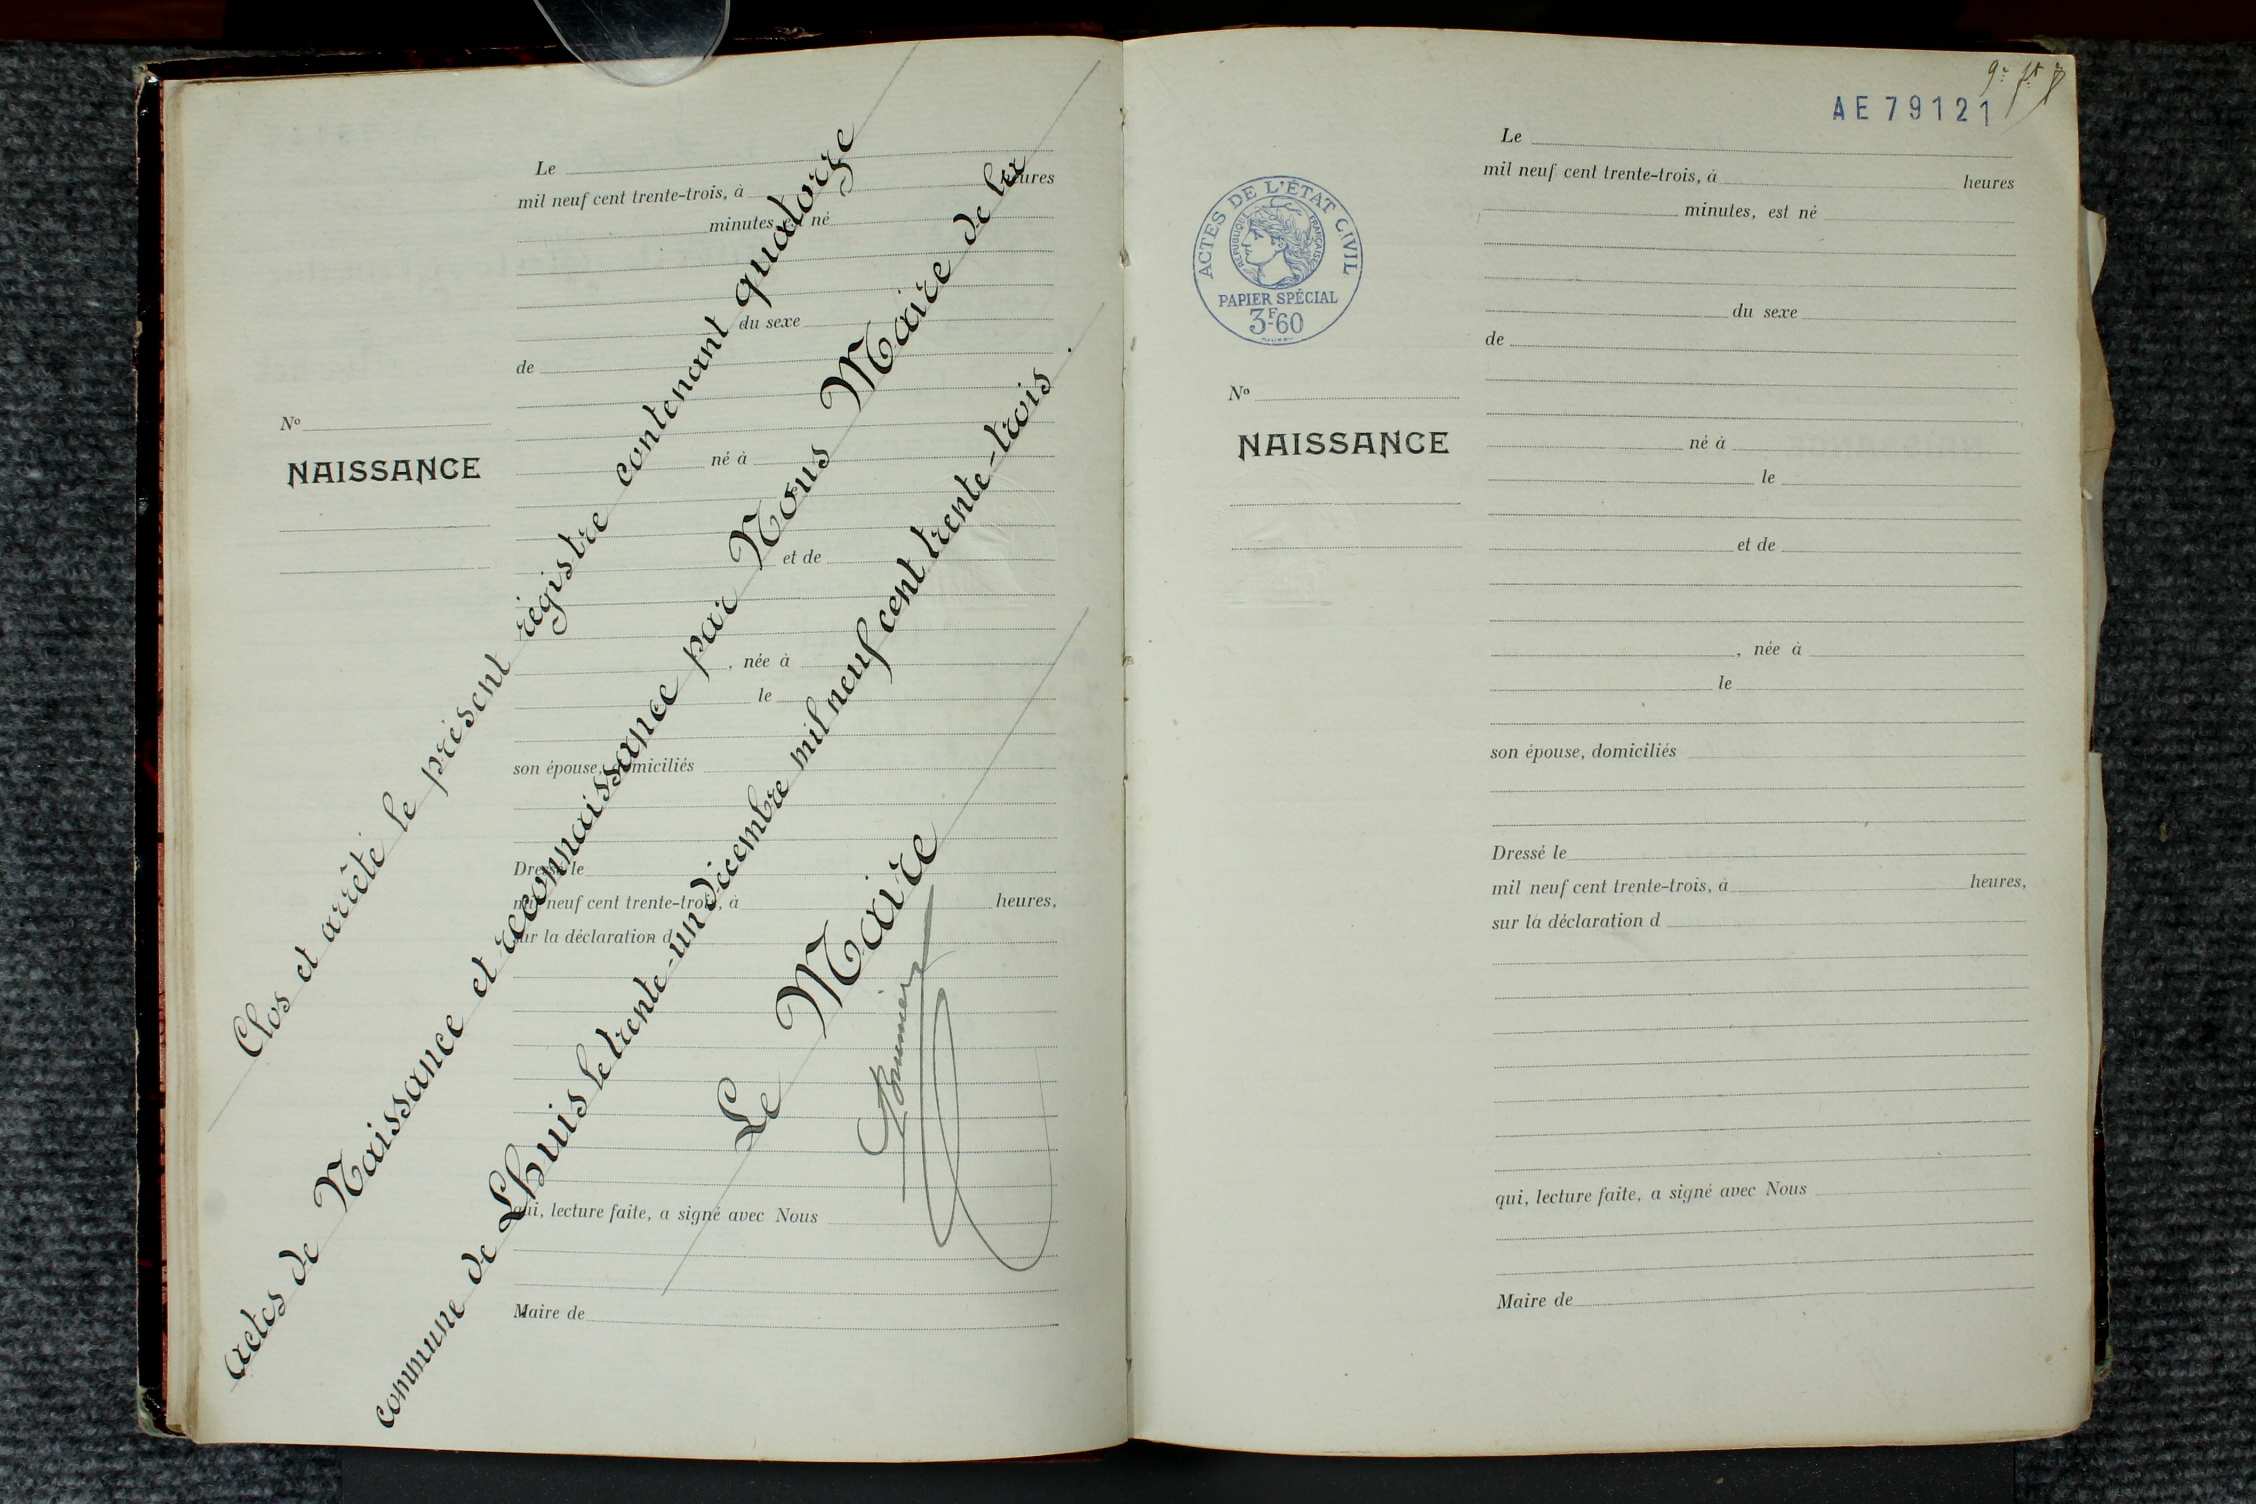 Le
mil neuf cent trente-trois, à heures
minutes, est né
du sexe
de
né à
et de
, née à
le
son épouse, domiciliés
Dressé le
mil neuf cent trente-trois, à heures,
sur la déclaration d
qui, lecture faite, a signé avec Nous
Maire de
No
NAISSANCE
Clos et arrêté le présent régistre contenant quatorze
actes de Naissance et reconnaissance par Nous Maire de la
commune de Lhuis le trente-un décembre mil neuf cent trente-trois.
Le Maire
AE 79121
ACTES DE L'ÉTAT CIVIL
RÉPUBLIQUE FRANÇAISE
PAPIER SPÉCIAL
3F60
No
NAISSANCE
Le
mil neuf cent trente-trois, à heures
minutes, est né
du sexe
de
né à
le
et de
, née à
le
son épouse, domiciliés
Dressé le
mil neuf cent trente-trois, à heures,
sur la déclaration d
qui, lecture faite, a signé avec Nous
Maire de